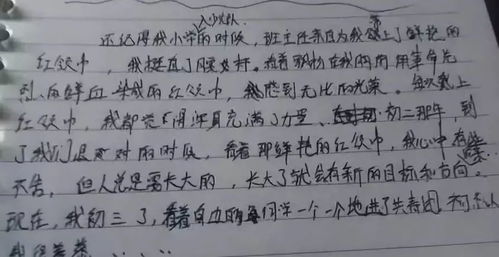 还记得我小学入少先队的时候，班主任亲自为我戴上了鲜艳的
红领巾，我挺直了腰杆。看着飘扬在我两肩用革命先
烈的鲜血染成的红领巾，我感到无比的光荣。每次戴上
红领巾，我都觉得浑身充满了力量、初二那年，到
了我们退队的时候，看着那鲜艳的红领巾，我心中有些
不舍，但人总是要长大的，长大了就会有新的目标和方向。
现在，我初三了，看着身边的同学一个一个地进了共青团
我很羡慕